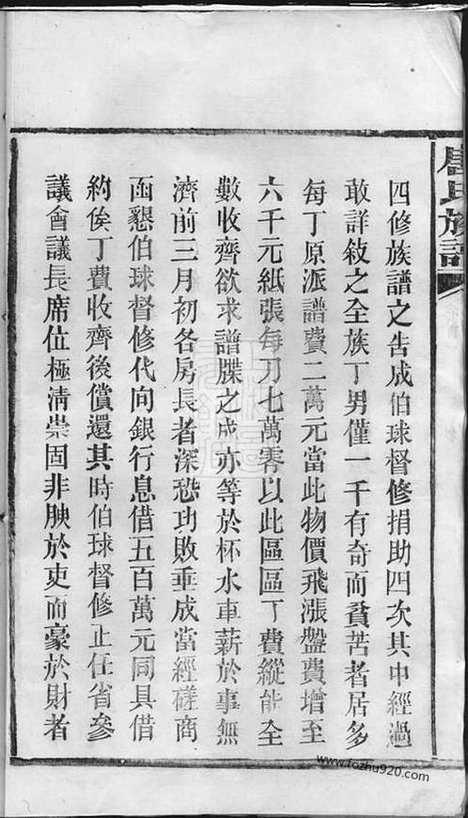 唐氏族譜
四修族譜之告成伯球督修捐助四次其中經過
敢詳敍之全族丁男僅一千有奇而貧苦者居多
每丁原派譜費二萬元當此物價飛漲盤費增至
六千元紙張每刀七萬零以此區區丁費縱能全
數收齊欲求譜牒之成亦等於杯水車薪於事無
濟前三月初各房長者深恐功敗垂成當經磋商
函懇伯球督修代向銀行息借五百萬元同具借
約俟丁費收齊後償還其時伯球督修止任省參
議會議長席位極清崇固非腴於吏而豪於財者
www.fozhu920.com